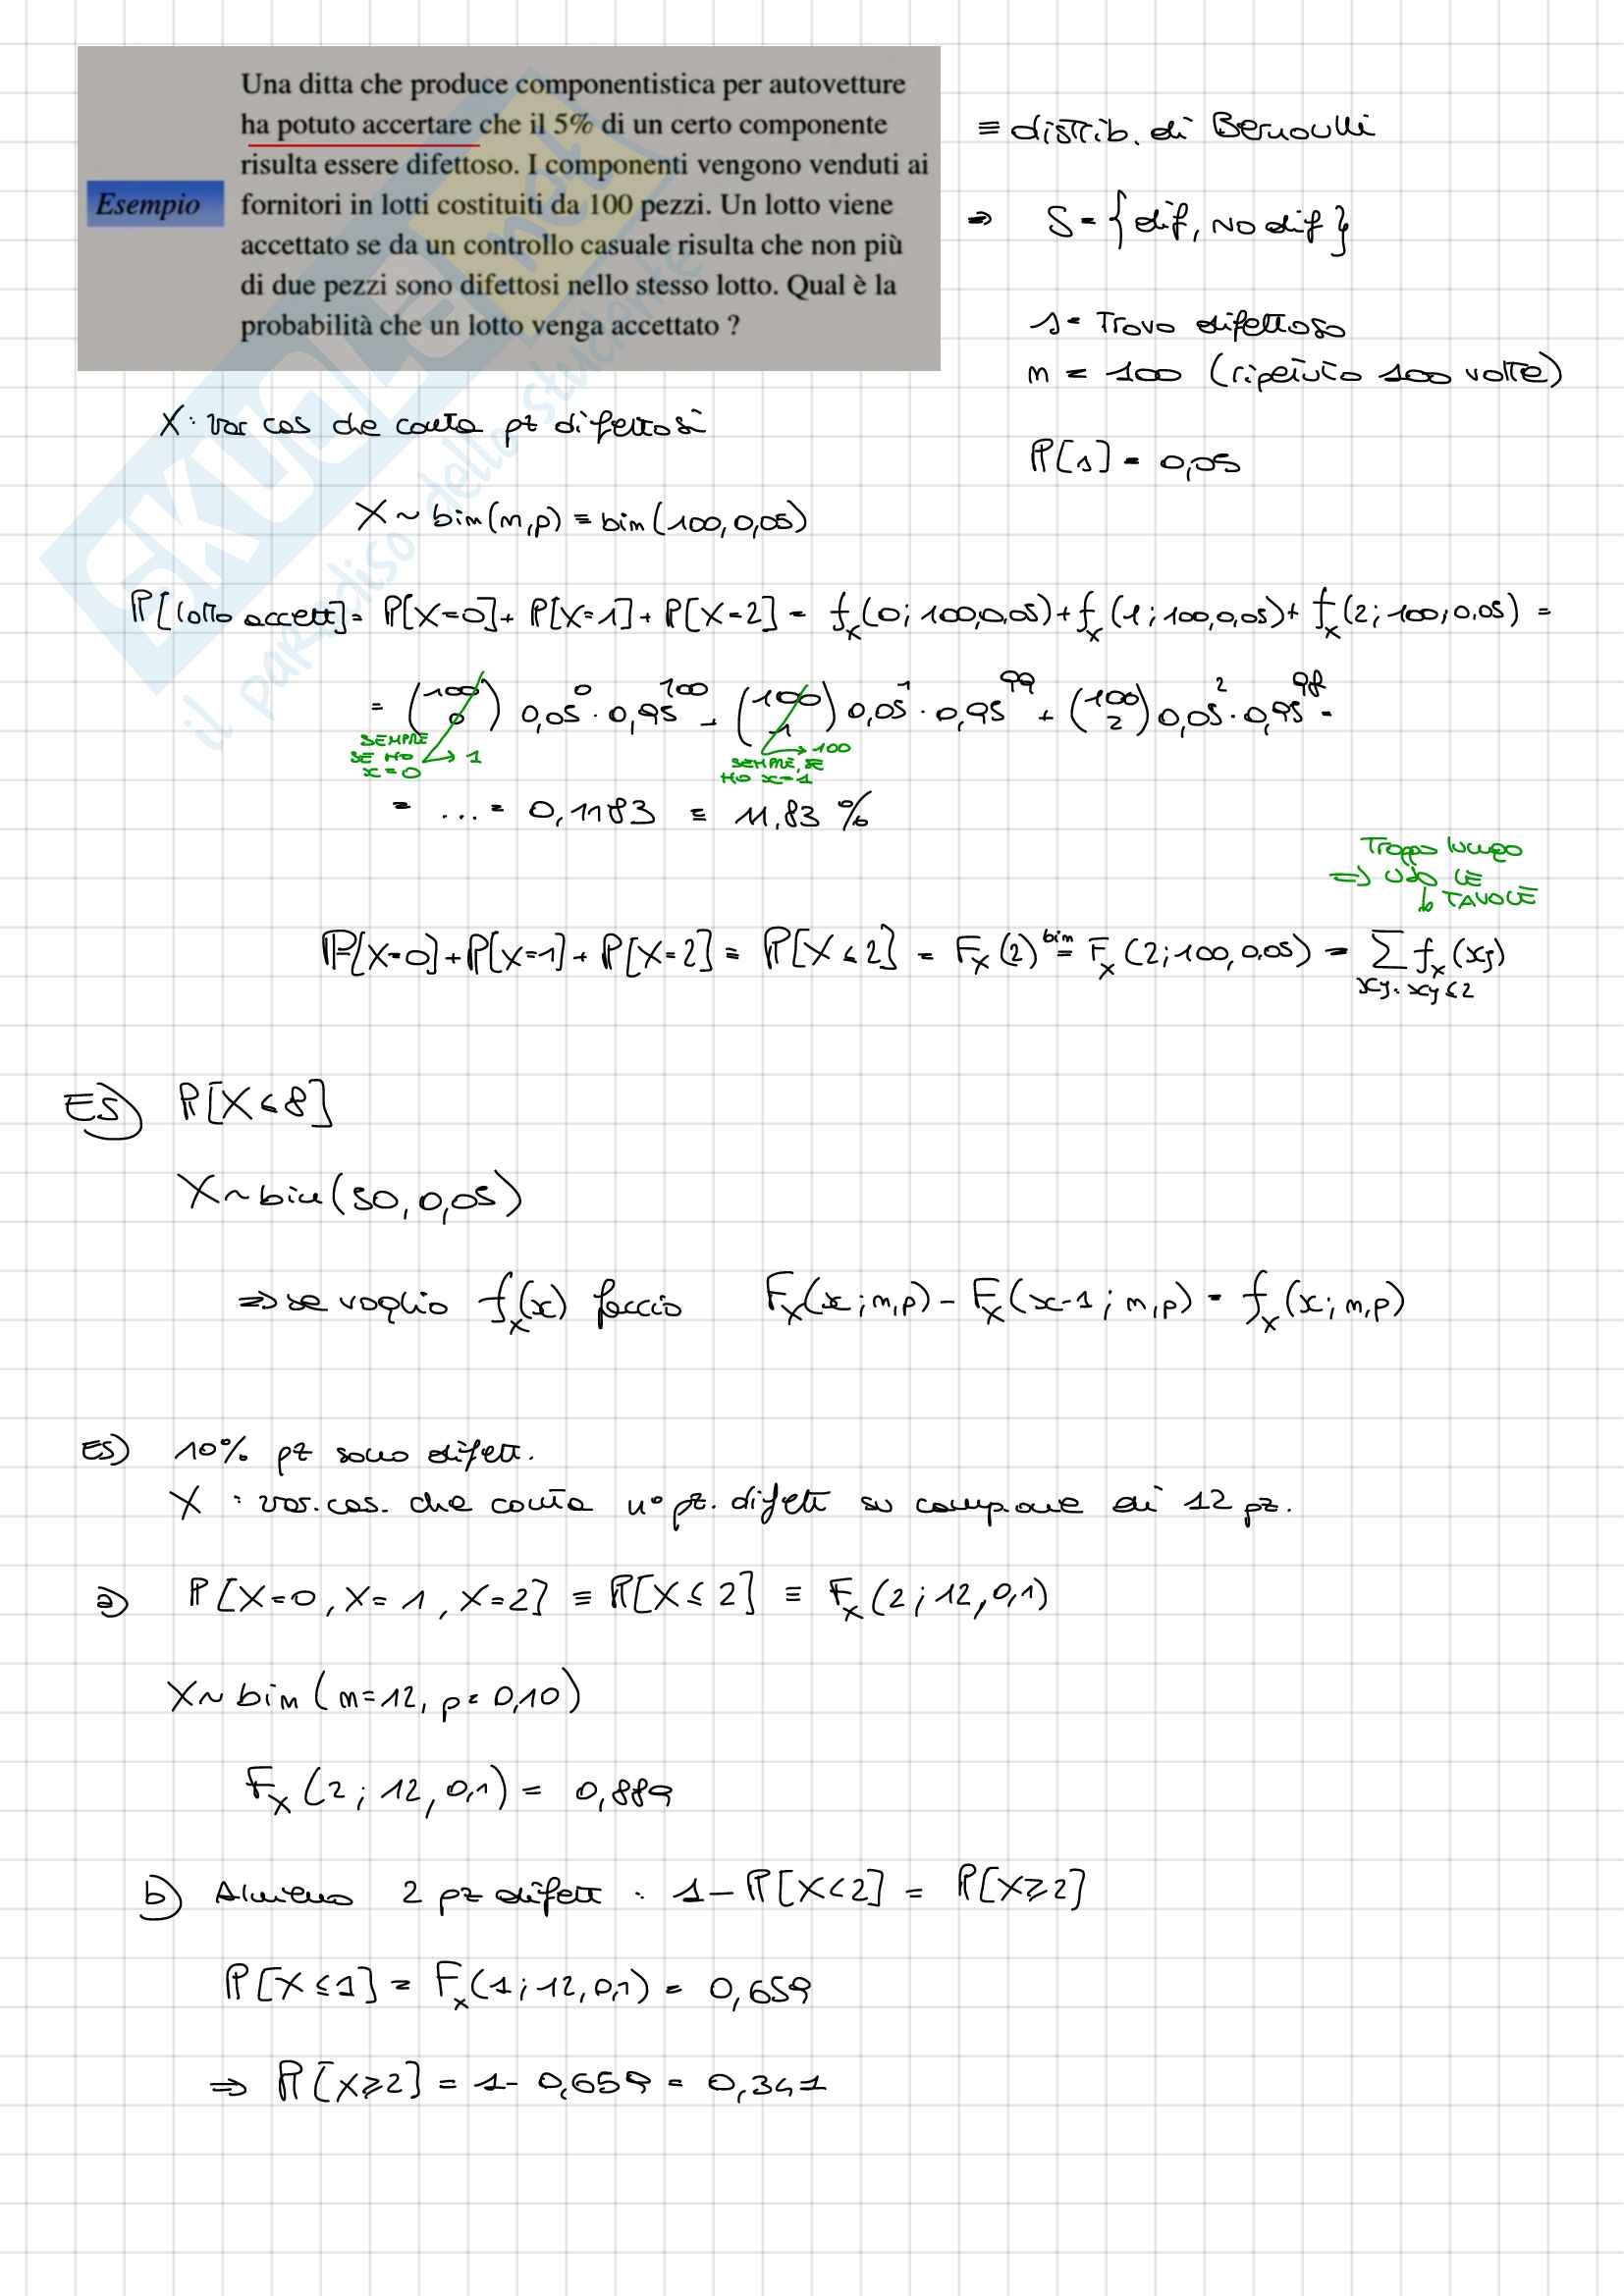 Una ditta che produce componentistica per autovetture
ha potuto accertare che il 5% di un certo componente
risulta essere difettoso. I componenti vengono venduti ai
Esempio fornitori in lotti costituiti da 100 pezzi. Un lotto viene
accettato se da un controllo casuale risulta che non più
di due pezzi sono difettosi nello stesso lotto. Qual è la
probabilità che un lotto venga accettato ?
≡ distrib. di Bernoulli
⇒ S = {dif, NO dif}
s = Trovo difettoso
n = 100 (ripetuto 100 volte)
P[s] = 0,05
X: var cas che conta pz difettosi
X ~ bin(n,p) ≡ bin(100, 0,05)
P[lotto accett] = P[X=0] + P[X=1] + P[X=2] = fx(0; 100,0,05) + fx(1; 100,0,05) + fx(2; 100; 0,05) =
= (100 0) 0,05^0 · 0,95^100 + (100 1) 0,05^1 · 0,95^99 + (100 2) 0,05^2 · 0,95^98 =
SEMPRE SE HO x=0 → 1
SEMPRE, SE HO x=1 → 100
= ... = 0,1183 ≡ 11,83 %
Troppo lungo
⇒ USO LE
↳ TAVOLE
P[X=0] + P[X=1] + P[X=2] ≡ P[X≤2] = Fx(2) bin= Fx(2; 100, 0,05) = Σ fx(xj)
xj: xj≤2
ES) P[X≤8]
X~bin(50, 0,05)
⇒ se voglio fx(x) faccio Fx(x; n,p) - Fx(x-1; n,p) = fx(x; n,p)
ES) 10% pz sono difett.
X : var. cas. che conta n° pz. difett su campione di 12 pz.
a) P[X=0, X=1, X=2] ≡ P[X≤2] ≡ Fx(2; 12, 0,1)
X~bin(n=12, p=0,10)
Fx(2; 12, 0,1) = 0,889
b) Almeno 2 pz difett : 1-P[X<2] = P[X≥2]
P[X≤1] = Fx(1; 12, 0,1) = 0,659
⇒ P[X≥2] = 1- 0,659 = 0,341
SKUOLA.net
il paradiso dello studente